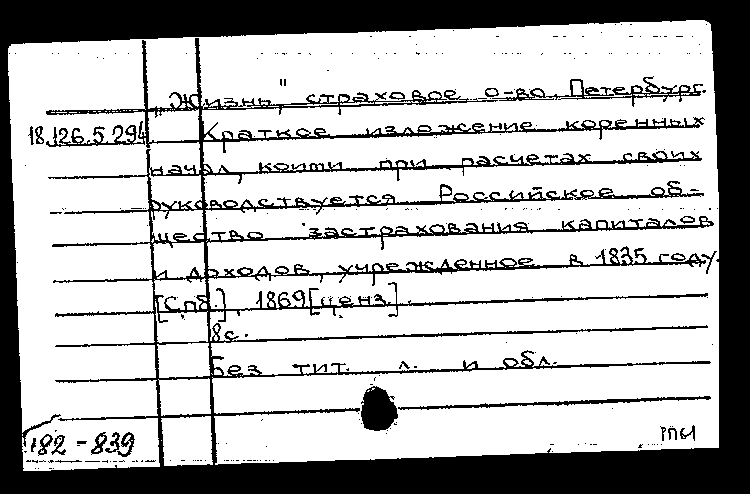 „Жизнь," страховое о-во. Петербург.
18.126.5.294 Краткое изложение коренных
начал, коими при расчетах своих
руководствуется Российское об-
щество застрахования капиталов
и доходов, учрежденное в 1835 году.
[Спб.], 1869 [ценз].
8с.
Без тит. л. и обл.
182-839
РПБ1